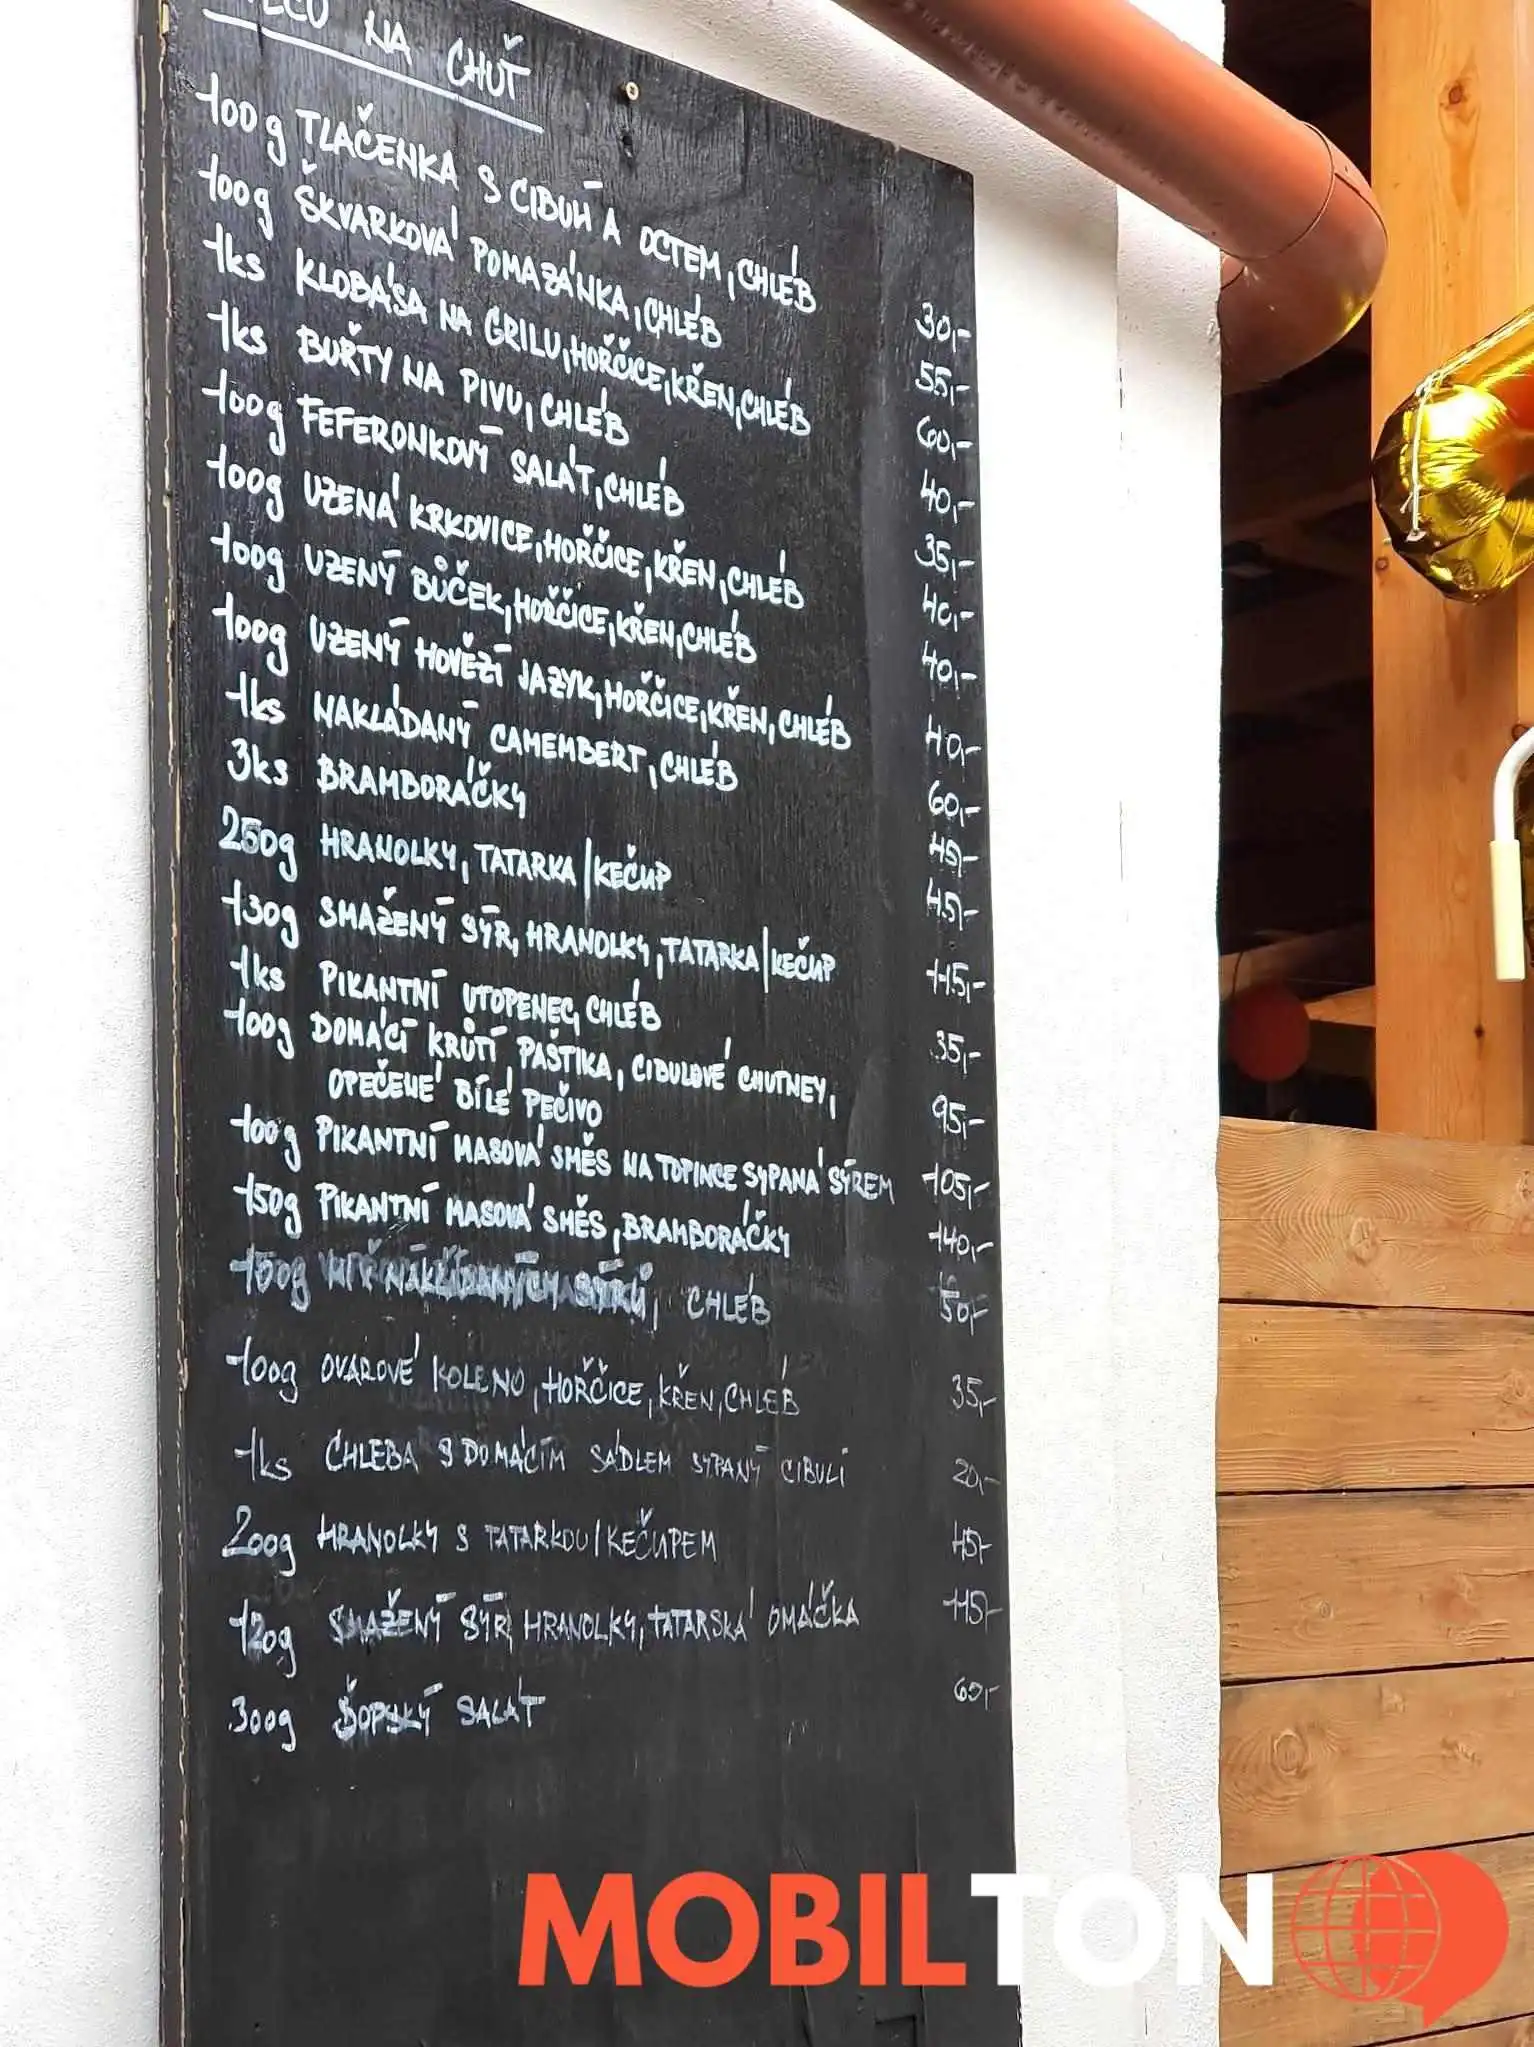 NA CHUŤ
100g TLAČENKA S CIBULÍ A OCTEM, CHLÉB 30,-
100g ŠKVARKOVÁ POMAZÁNKA, CHLÉB 55,-
1ks KLOBÁSA NA GRILU, HOŘČICE, KŘEN, CHLÉB 60,-
1ks BUŘTY NA PIVU, CHLÉB 40,-
100g FEFERONKOVÝ SALÁT, CHLÉB 35,-
100g UZENÁ KRKOVICE, HOŘČICE, KŘEN, CHLÉB 40,-
100g UZENÝ BŮČEK, HOŘČICE, KŘEN, CHLÉB 40,-
100g UZENÝ HOVĚZÍ JAZYK, HOŘČICE, KŘEN, CHLÉB 40,-
1ks NAKLÁDANÝ CAMEMBERT, CHLÉB 60,-
3ks BRAMBORÁČKY 45,-
250g HRANOLKY, TATARKA/KEČUP 45,-
130g SMAŽENÝ SÝR, HRANOLKY, TATARKA/KEČUP 115,-
1ks PIKANTNÍ UTOPENEC, CHLÉB 35,-
100g DOMÁCÍ KRŮTÍ PAŠTIKA, CIBULOVÉ CHUTNEY,
OPEČENÉ BÍLÉ PEČIVO 95,-
100g PIKANTNÍ MASOVÁ SMĚS NA TOPINCE SYPANÁ SÝREM 105,-
150g PIKANTNÍ MASOVÁ SMĚS, BRAMBORÁČKY 140,-
CHLÉB
100g OVAROVÉ KOLENO, HOŘČICE, KŘEN, CHLÉB 35,-
1ks CHLEBA S DOMÁCÍM SÁDLEM SYPANÝ CIBULÍ 20,-
200g HRANOLKY S TATARKOU/KEČUPEM 45,-
120g SMAŽENÝ SÝR, HRANOLKY, TATARSKÁ OMÁČKA 115,-
300g ŠOPSKÝ SALÁT 60,-
MOBILTON